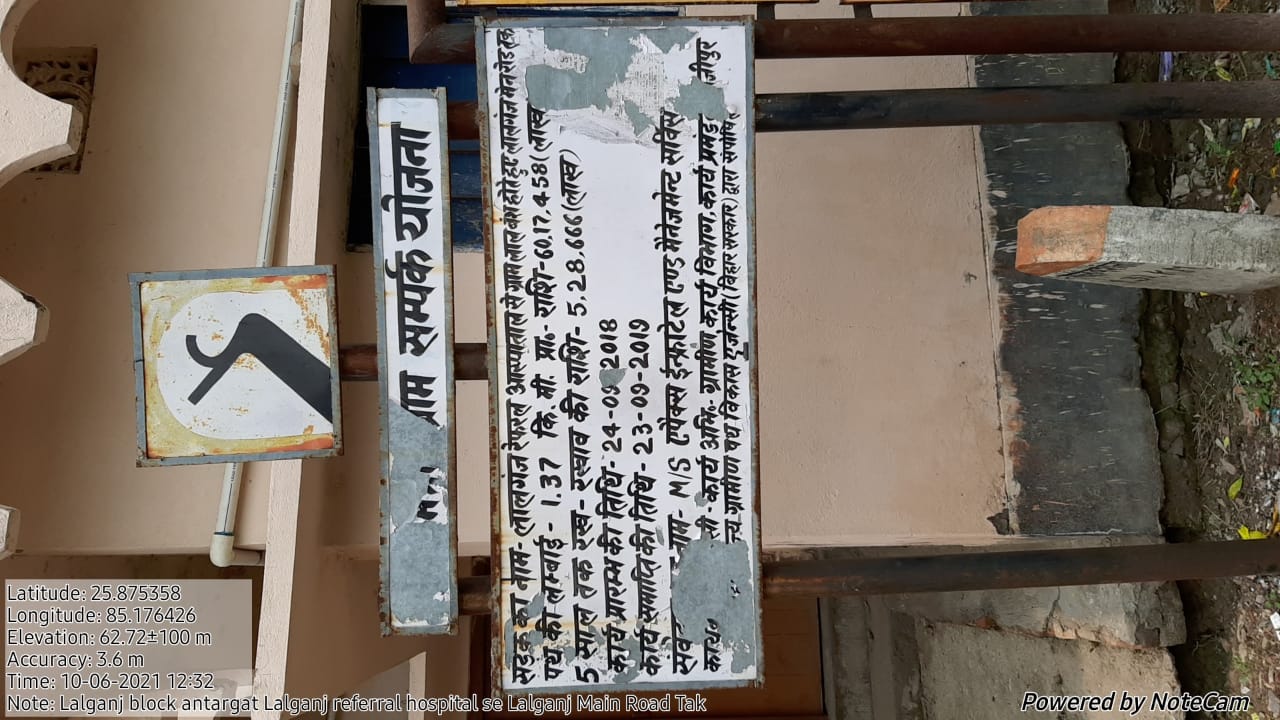 ग्राम सम्पर्क योजना
सड़क का नाम- लालगंज रेफरल अस्पताल से ग्राम लाल बसंत होते हुए लालगंज मेन रोड तक
पथ की लम्बाई - 1.37 कि. मी. प्रा.- राशि- 60,17,458 (लाख
5 साल तक रख- रखाव की राशि- 5,28,666 (लाख)
कार्य प्रारम्भ की तिथि- 24-09-2018
कार्य समाप्ति की तिथि- 23-09-2019
संवे नाम - M/S एपेक्स ईन्फ्राटेल एण्ड मैनेजमेन्ट सर्विस
का०अ० सी - कार्य अभि.- ग्रामीण कार्य विभाग, कार्य प्रमंड जीपुर
ग्रामीण पथ विकास एजेन्सी (बिहार सरकार) द्वारा
Latitude: 25.875358
Longitude: 85.176426
Elevation: 62.72±100 m
Accuracy: 3.6 m
Time: 10-06-2021 12:32
Note: Lalganj block antargat Lalganj referral hospital se Lalganj Main Road Tak
Powered by NoteCam